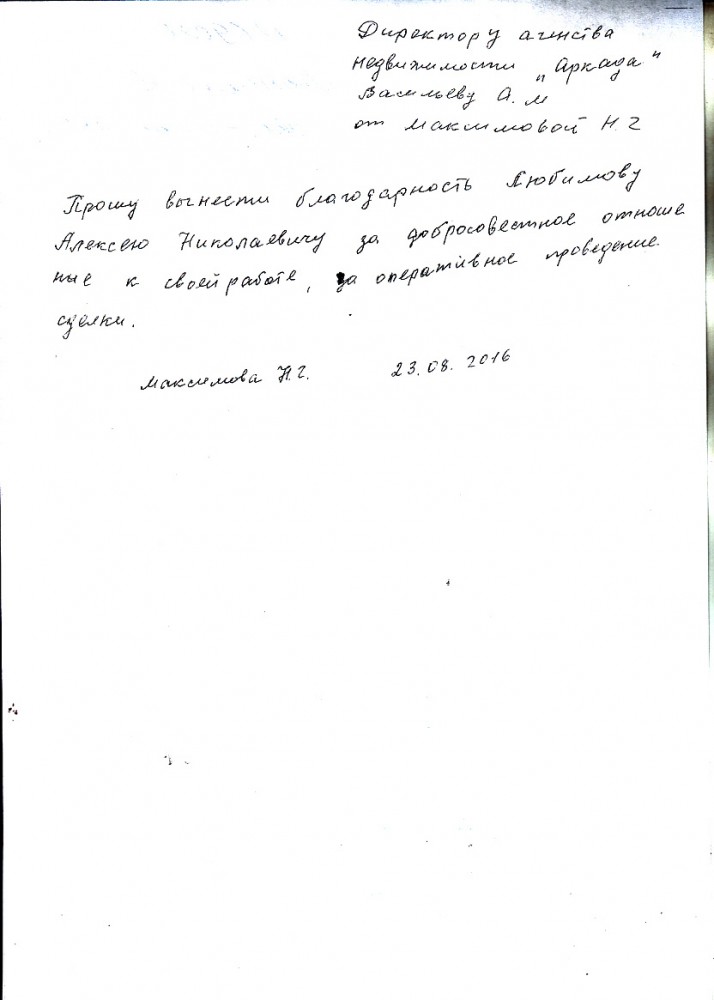 Директору агенства
недвижимости "Аркада"
Васильеву А.М
от Максимовой Н.Г
Прошу вынести благодарность Любимову
Алексею Николаевичу за добросовестное отноше
ние к своей работе, за оперативное проведение
сделки.
Максимова Н.Г. 23.08.2016